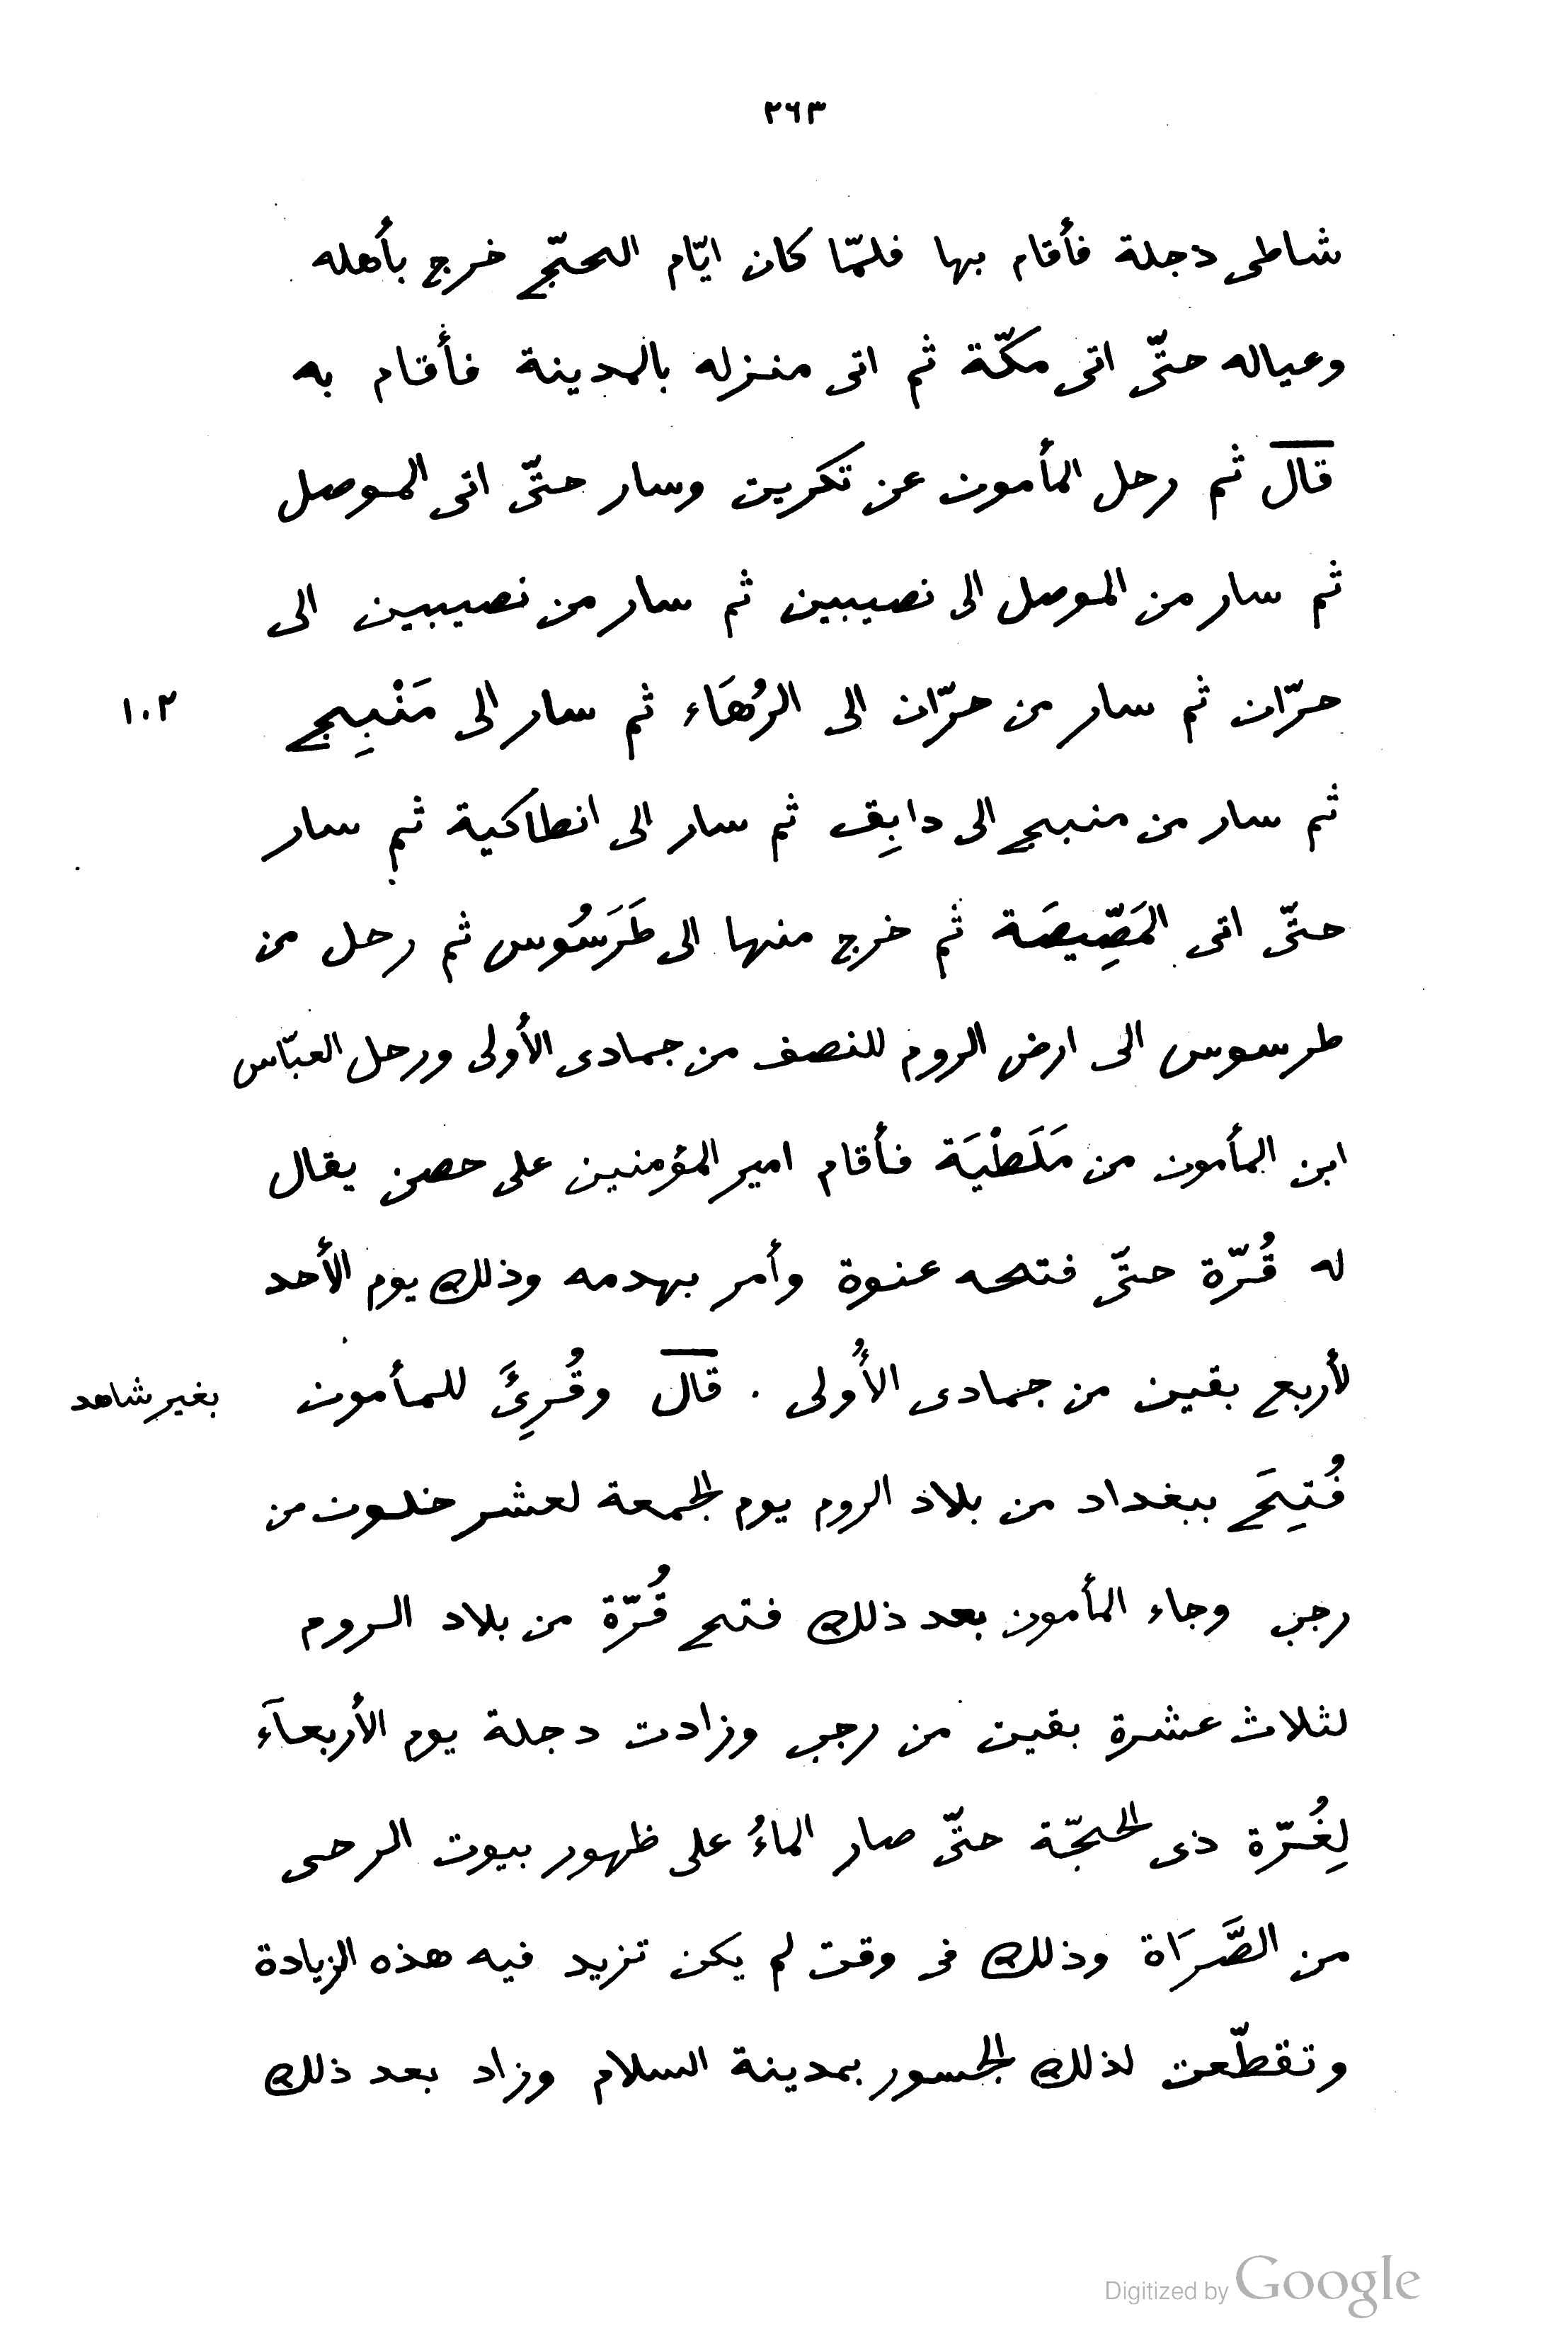 ٢٦٣
شاطى دجلة فأقام بها فلمّا كان ايّام الحجّ خرج بأهله
وعياله حتّى اتى مكّة ثم اتى منزله بالمدينة فأقام به
قال ثم رحل المأمون عن تكريت وسار حتّى اتى الموصل
ثم سار من الموصل الى نصيبين ثم سار من نصيبين الى
حرّان ثم سار من حرّان الى الرُهَاء ثم سار الى مَنْبِج ١٠٢
ثم سار من منبج الى دابِق ثم سار الى انطاكية ثم سار
حتّى اتى المَصِّيصَة ثم خرج منها الى طَرَسُوس ثم رحل من
طرسوس الى ارض الروم للنصف من جمادى الأولى ورحل العبّاس
ابن المأمون من مَلَطْيَة فأقام امير المؤمنين على حصن يقال
له قُرّة حتّى فتحه عنوة وأمر بهدمه وذلك يوم الأحد
لأربع بقين من جمادى الأُولى . قال وقُرِئَ للمأمون بغير شاهد
فُتِحَ ببغداد من بلاد الروم يوم الجمعة لعشر خلون من
رجب وجاء المأمون بعد ذلك فتح قُرّة من بلاد الروم
لثلاث عشرة بقين من رجب وزادت دجلة يوم الأربعآء
لِغُرّة ذى الحجّة حتّى صار الماءُ على ظهور بيوت الرحى
من الصَّرَاة وذلك فى وقت لم يكن تزيد فيه هذه الزيادة
وتقطّعت لذلك الجسور بمدينة السلام وزاد بعد ذلك
Digitized by Google